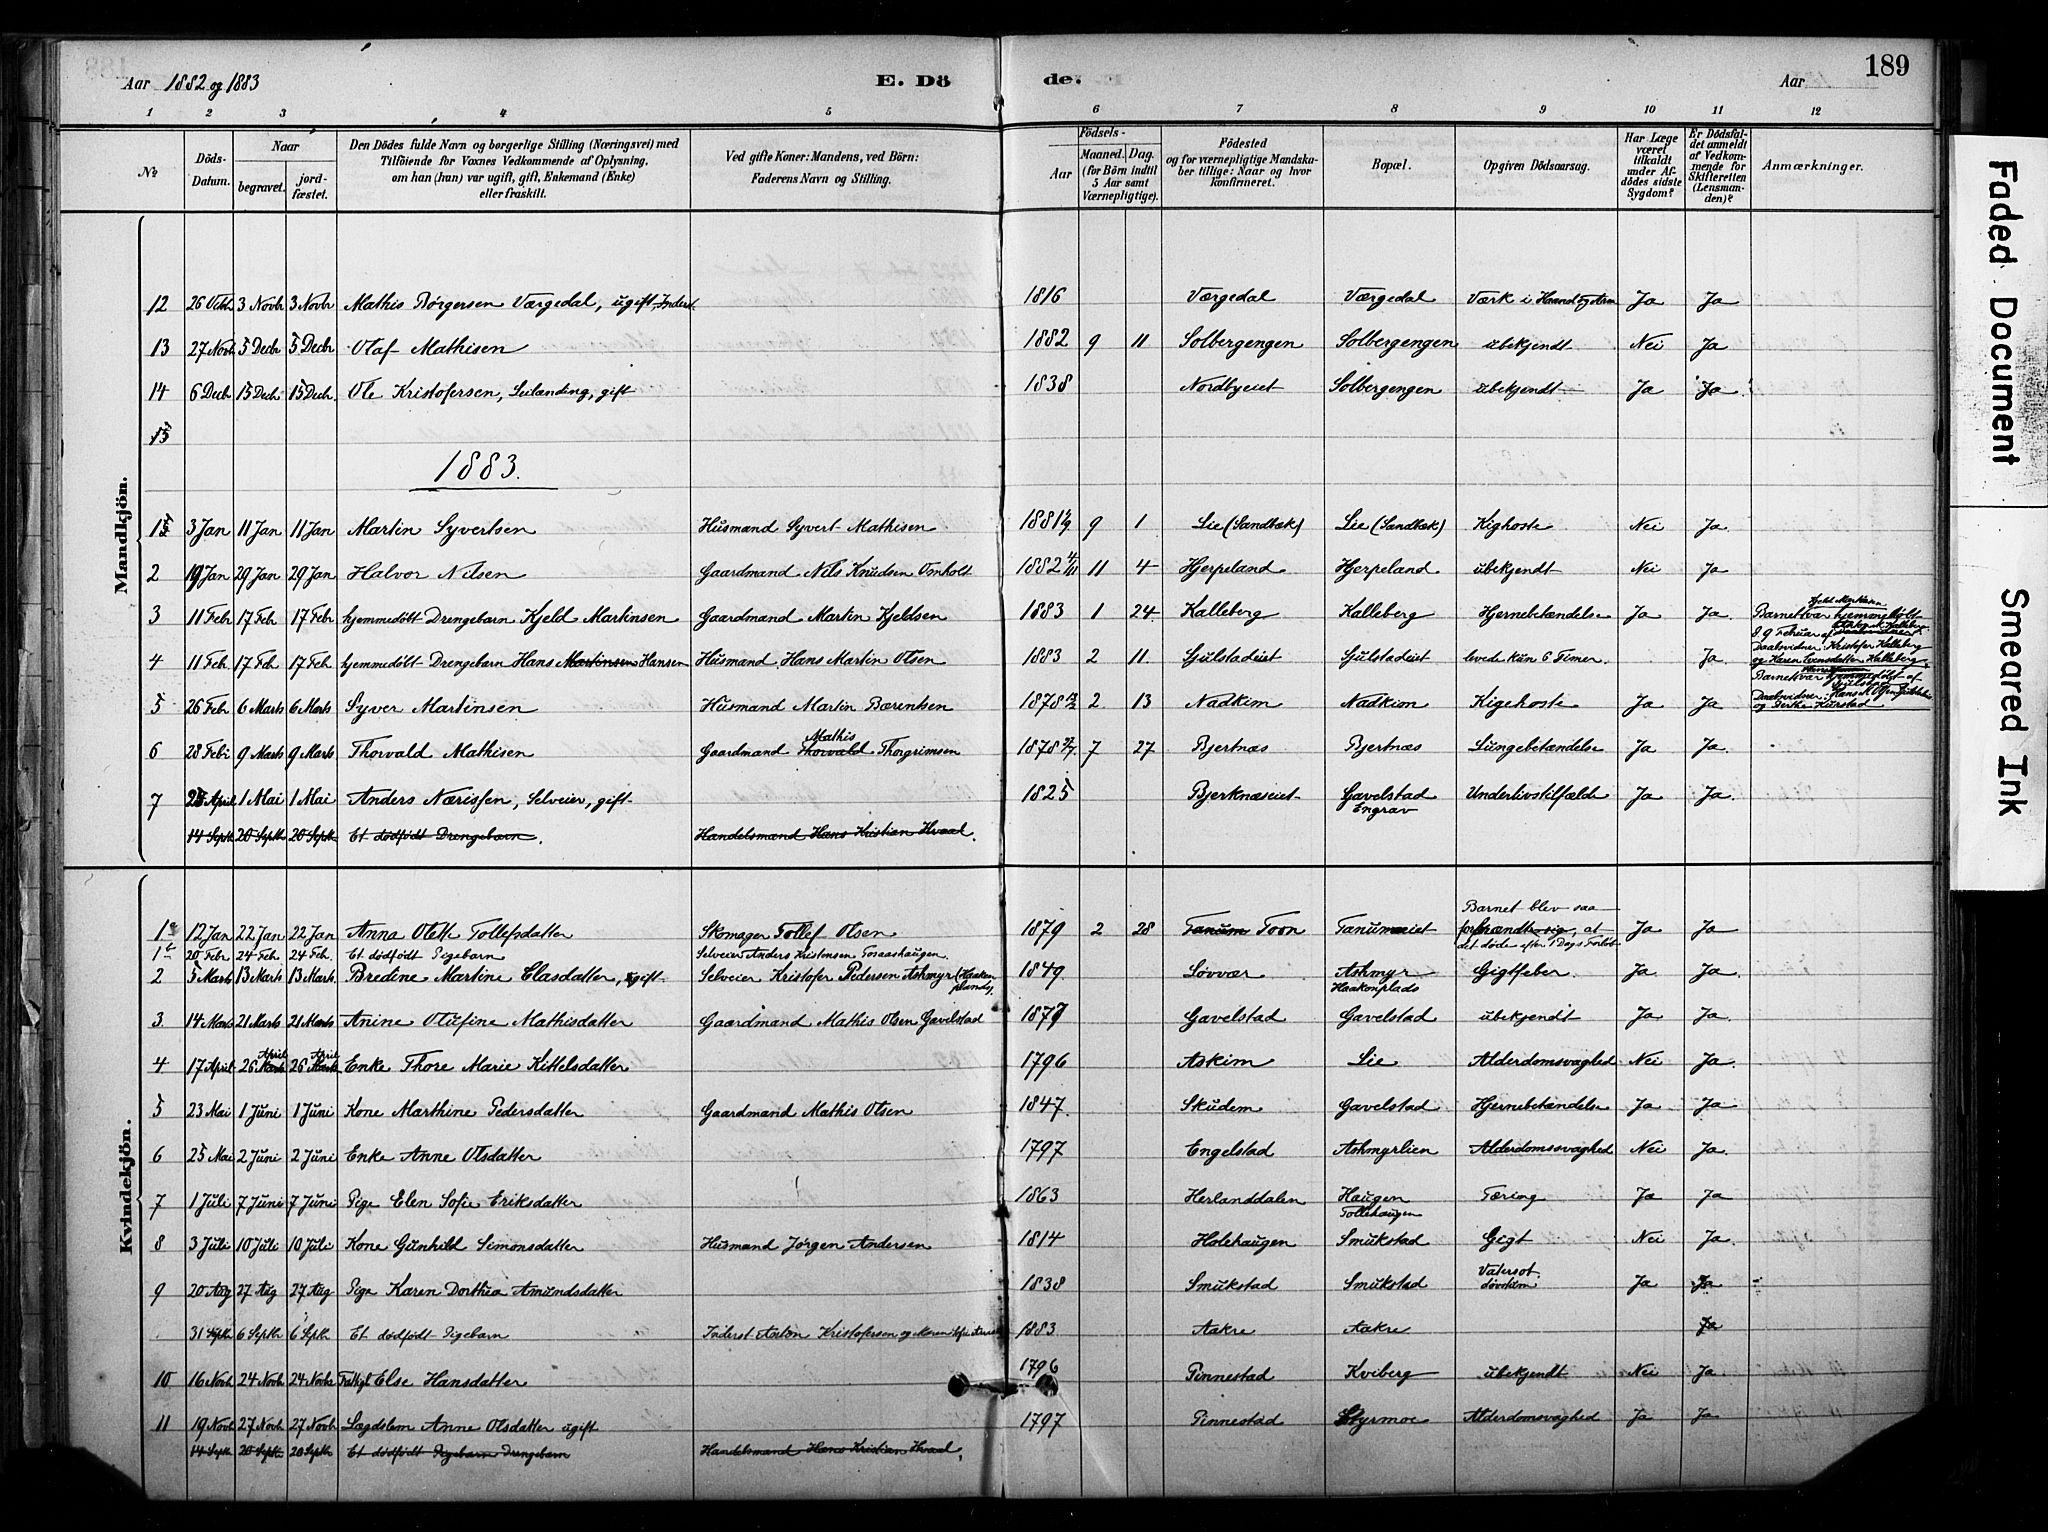 Aar 1882 og 1883
E. Dö de.
Aar
189
1 2 3 4 5 6 7 8 9 10 11 12
№
Döds-Datum.
Naar
begravet.
jord-fæstet.
Den Dödes fulde Navn og borgerlige Stilling (Næringsvei) med
Tilföiende for Voxnes Vedkommende af Oplysning,
om han (hun) var ugift, gift, Enkemand (Enke)
eller fraskilt.
Ved gifte Koner: Mandens, ved Börn:
Faderens Navn og Stilling.
Födsels-
Aar
Maaned. Dag.
(for Börn indtil
5 Aar samt
Værnepligtige).
Födested
og for værnepligtige Mandska-
ber tillige: Naar og hvor
konfirmeret.
Bopæl.
Opgiven Dödsaarsag.
Har Læge
været
tilkaldt
under Af-
dödes sidste
Sygdom?
Er Dödsfal-
det anmeldt
af Vedkom-
mende for
Skifteretten
(Lensman-
den)?
Anmærkninger.
Mandkjön.
12 26 Oktb 3 Novbr 3 Novbr Mathis BørgersenVærgedal, ugift, Inderst. 1816 Værgedal Værgedal Værk i Haand og Arm Ja Ja
13 27 Novb 5 Decbr 5 Decbr Olaf Mathisen 1882 9 11 Solbergengen Solbergengen ubekjendt Nei Ja
14 6 Decb 15 Decb 15 Decb Ole Kristofersen, Leilænding, gift 1838 Nordbyeiet Solbergengen ubekjendt Ja Ja
15
1883.
1 3 Jan 11 Jan 11 Jan Martin Syvertsen Husmand Syvert Mathisen 1881 1/9 9 1 Lie (Sandbæk) Lie (Sandbæk) Kighoste Nei Ja
2 19 Jan 29 Jan 29 Jan Halvor Nilsen Gaardmand Nils Knudsen Omholt 1882 4/11 11 4 Hjerpeland Hjerpeland ubekjendt Nei Ja
3 11 Febr 17 Febr 17 Febr hjemmedøbt Drengebarn Kjeld Martinsen Gaardmand Martin Kjeldsen 1883 1 24 Kalleberg Kalleberg Hjernebetændelse Ja Ja. Barnet var hjemmedøbt
d. 9 Februar af
Daabvidner: Kristofer Kalleberg
og Karen Evensdatter Kalleberg
4 11 Feb. 17 Feb 17 Feb. hjemmedøbt Drengebarn Hans Martinsen Hansen Husmand Hans Martin Olsen 1883 2 11. Gjulstadeiet Gjulstadeiet levede kun 6 Timer. Ja. Barnet var hjemmedøbt af
Daabvidner: Hans
og
5 26 Feb 6 Marts 6 Marts Syver Martinsen Husmand Martin Bærentsen 1878 13/2 2. 13 Nadkim Nadkim Kigehoste Ja Ja.
6 28 Febr 9 Marts 9 Marts Thorvald Mathisen Gaardmand Thorvald Mathis Thorgrimsen 1878 27/7 7 27 Bjertnæs Bjertnæs Lungebetændelse Ja Ja.
7 25 April 1 Mai 1 Mai Anders Nærissen, Selveier, gift. 1825 Bjerknæseiet Gavelstad Engrav Underlivstilfælde Ja Ja.
14 Septb 20 Septb 20 Septb Et dødfødt Drengebarn. Handelsmand Hans Kristian Hvaal.
Kvindekjön.
1a 12 Jan 22 Jan 22 Jan Anna Oleth Tollefsdatter Skomager Tollef Olsen 1879 2 28 Tanum Toon Tanumeiet Barnet blev saa
forbrændt, at
det døde efter 1 Dags Forløb Ja Ja
1b 20 Febr 24 Feb. 24 Feb. Et dødfødt Pigebarn Selveier Anders Kristensen Tosaashaugen.
2 5 Marts 13 Marts 13 Marts. Bredine Martine Elasdatter, gift. Selveier Kristofer Pedersen Askmyr (Haakenplands). 1849. Løvvær Askmyr Haakonplads Gigtfeber Ja. Ja.
3. 14 Marts 21 Marts 21 Marts Anine Olufine Mathisdatter Gaardmand Mathis Olsen Gavelstad 1877 Gavelstad Gavelstad ubekjendt Ja Ja.
4. 17 April 26 April 26 April Enke Thore Marie Kittelsdatter 1796 Askim Lie Alderdomsvaghed Nei Ja.
5 23 Mai 1 Juni 1 Juni Kone Marthine Pedersdatter Gaardmand Mathis Olsen 1847. Skudem Gavelstad Hjernebetændelse Ja Ja
6 25 Mai 2 Juni 2 Juni Enke Anne Olsdatter 1797 Engelstad Askmyrlien Alderdomssvaghed Nei Ja
7 1 Juli 7 Juni 7 Juni Pige Elen Sofie Eriksdatter 1863 Herlanddalen Haugen Tollehaugen Tæring Ja Ja
8 3 Juli 10 Juli 10 Juli Kone Gunhild Simonsdatter Husmand Jørgen Andersen 1814 Holehaugen Smukstad Gigt Nei Ja.
9 20 Aug 27 Aug 27 Aug Pige Karen Dorthea Amundsdatter 1838 Smukstad Smukstad Vatersot Ja Ja
31 Septb 6 Septb 6 Septb Et dødfødt Pigebarn Inderst Anton Kristofersen og 1883 Aakre Aakre Ja
10 16 Novb 24 Novb 24 Novb Else Hansdatter 1796 Pinnestad Kviberg ubekjendt Nei Ja.
11 19 Novb 27 Novb 27 Novb Lægdslem Anne Olsdatter ugift 1797 Pinnestad Styrmoe Alderdomsvaghed Ja Ja
14 Septb 20 Septb 20 Septb Et dødfødt Pigebarn Drengebarn Handelsmand Hans Kristian Hvaal.
Faded Document
Smeared Ink